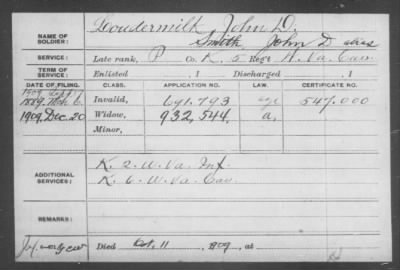 NAME OF SOLDIER: Loudermilk, John D.
Smith, John D alias
SERVICE: Late rank, P Co. K, 5 Reg't W. Va. Cav.
TERM OF SERVICE: Enlisted , 1 Discharged , 1
DATE OF FILING. CLASS. APPLICATION NO. LAW. CERTIFICATE NO.
1889 Mch 6 Invalid, 691.793 547.000
1909 Dec. 20 Widow, 932,544.
Minor,
ADDITIONAL SERVICES: K. 2. W. Va. Inf.
K. 6. W. Va. Cav.
REMARKS:
Died Oct. 11, 1909, at